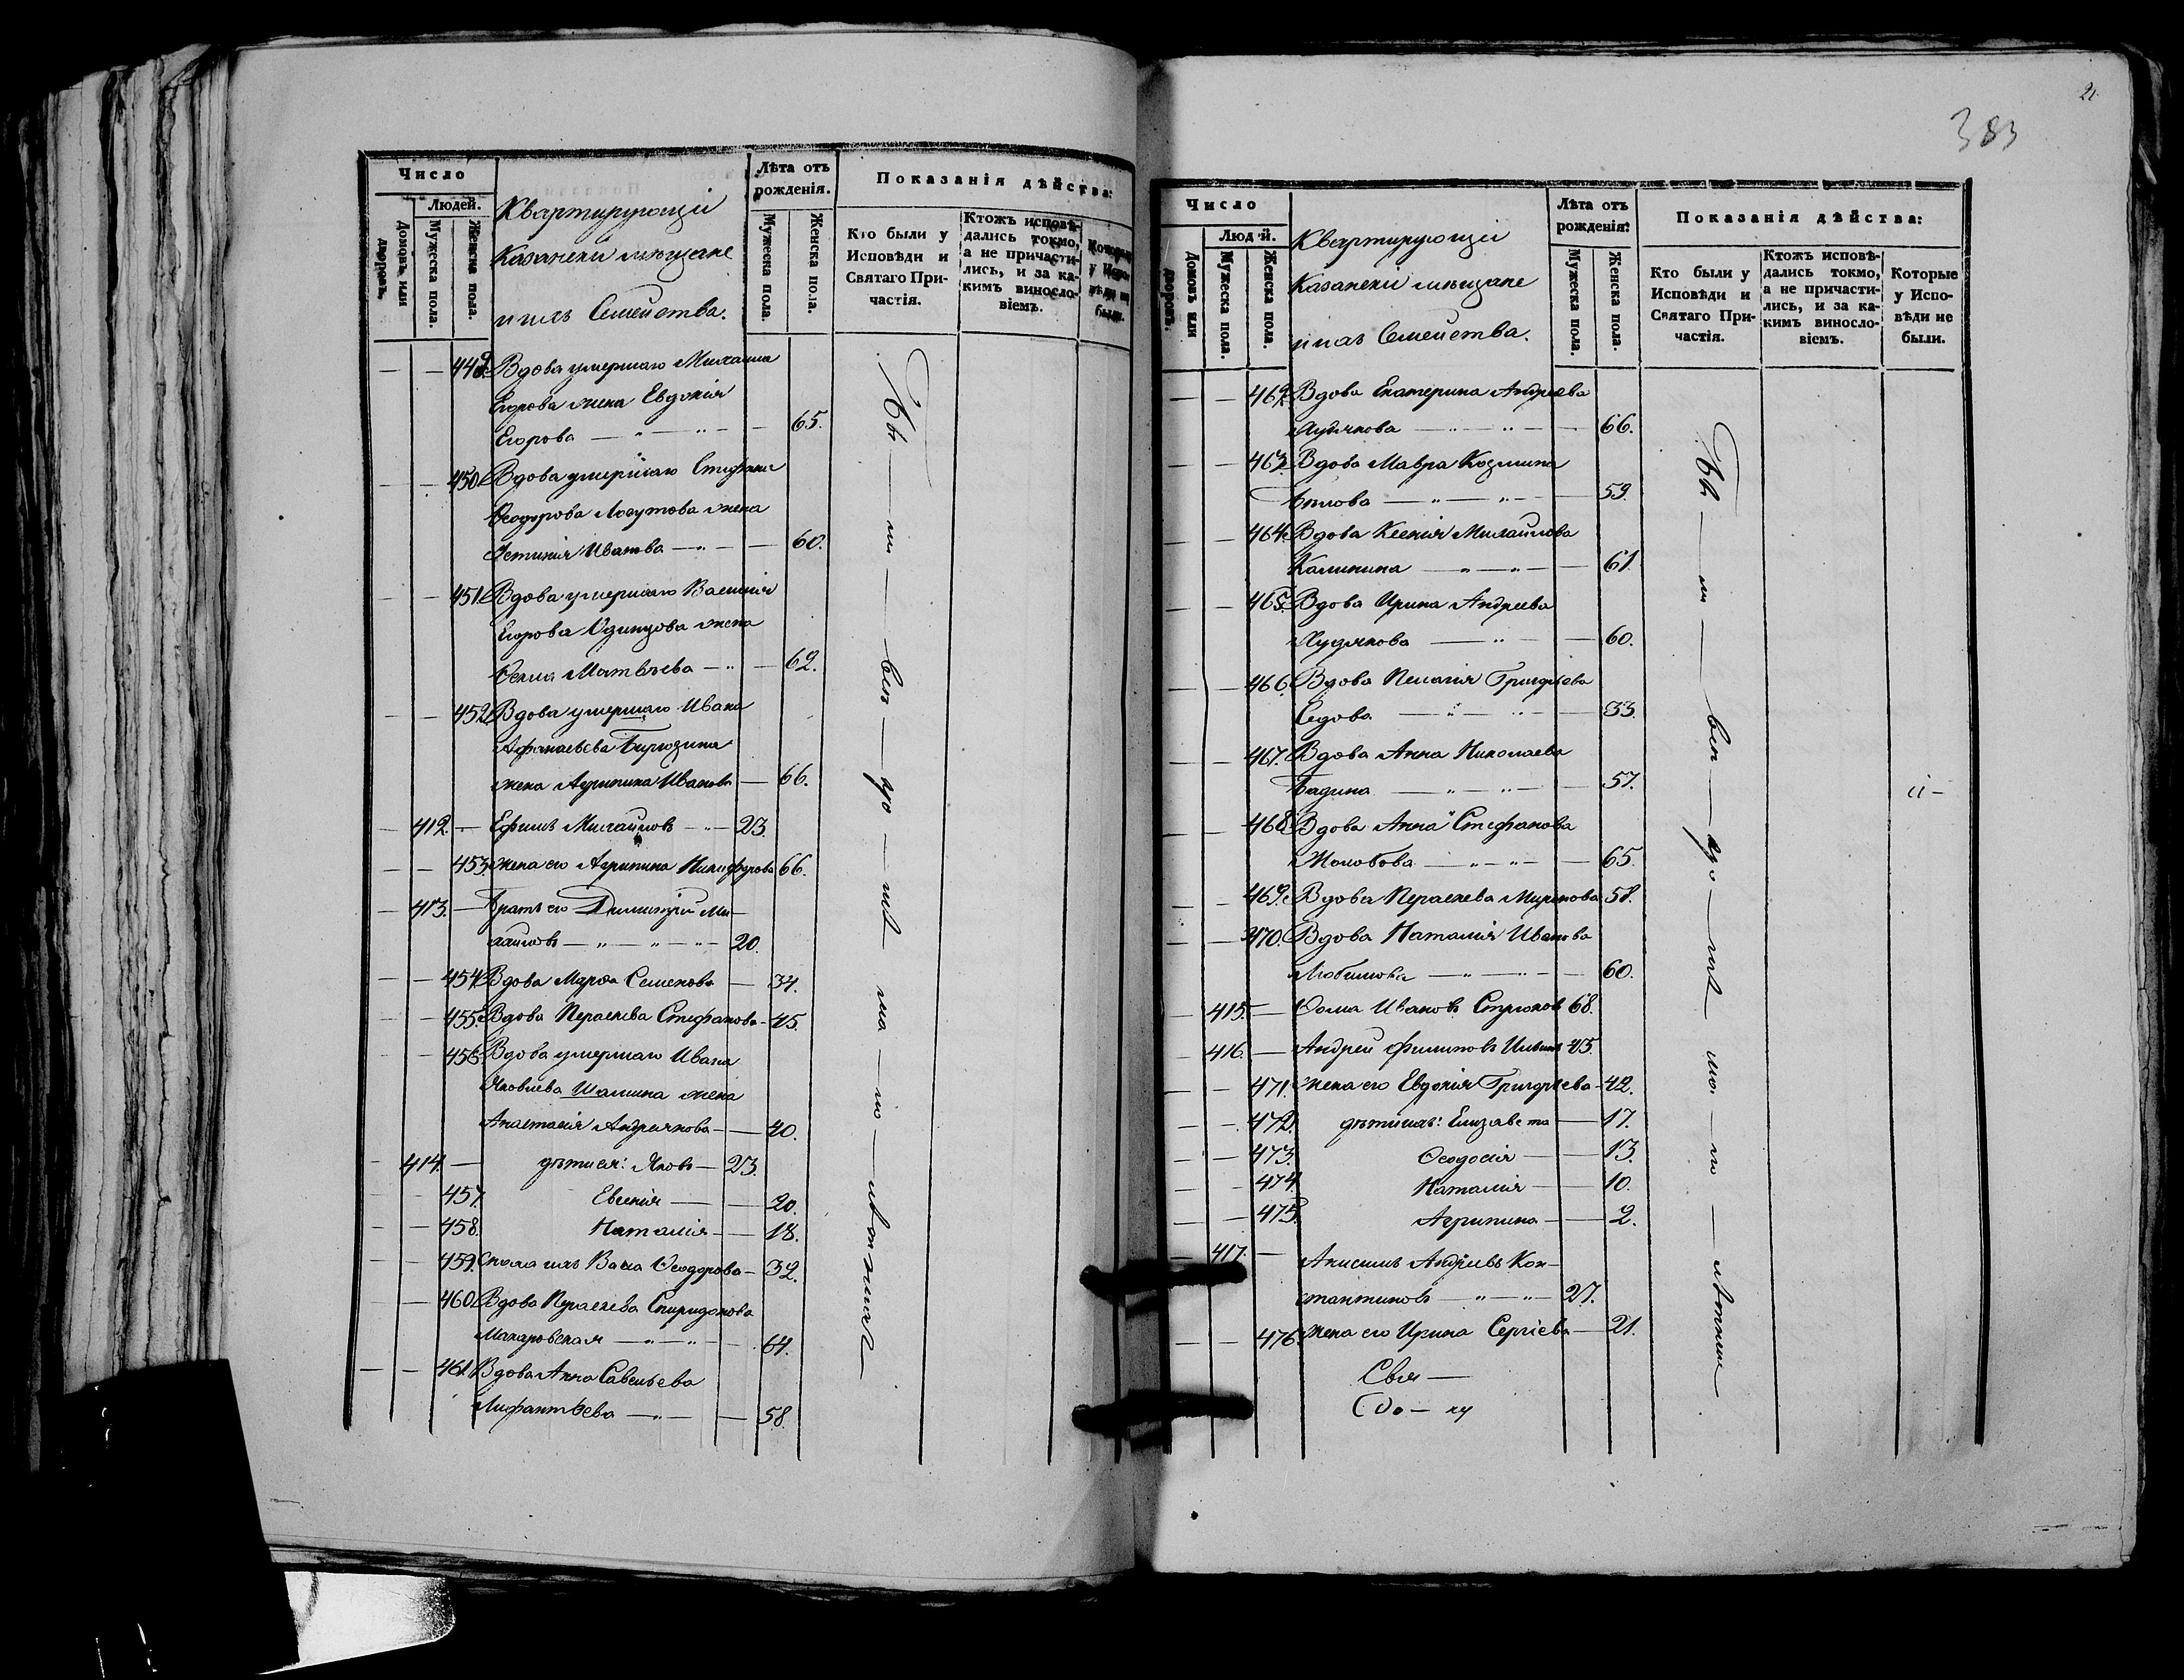 Число
Людей.
Домовъ или дворовъ.
Мужеска пола.
Женска пола.
Квартирующіи
Казанскіи мѣщане
и ихъ Семейства.
Лѣта отъ рожденія.
Мужеска пола.
Женска пола.
Показанія дѣйства:
Кто были у Исповѣди и Святаго Причастія.
Ктожъ исповѣдались токмо, а не причастились, и за какимъ винословіемъ.
Которые у Исповѣди не были.
— — 449. Вдова умершаго Михаила
Егорова жена Евдокія
Егорова — „ — „ — — 65.
— — 450. Вдова умершаго Стефана
Ѳеодорова Логутова жена
Устинія Иванова — „ — — 60.
— — 451. Вдова умершаго Василія
Егорова Одинцова жена
Матвѣева — „ — 62.
— — 452. Вдова умершаго Ивана
Афанасьева Бирюзина
жена Агрипина Иванова — 66.
— 412. — Ефимъ Михайловъ — „ — 23.
— — 453. жена его Агрипина Никифорова 66.
— 413. — Братъ его Димитрій Ми-
хаиловъ — „ — „ — „ — 20.
— — 454. Вдова Марѳа Семенова — 34.
— — 455. Вдова Параскева Стефанова — 45.
— — 456. Вдова умершаго Ивана
Яковлева Шалина жена
Анастасія Андреянова — — 40.
— 414. — дѣти ея: Яковъ — 23.
— — 457. Евгенія — — 20.
— — 458. Наталія — — 18.
— — 459. Сноха ихъ Васса Ѳеодорова — 32.
— — 460. Вдова Параскева Спиридонова
Макаровская — „ — „ — 64.
— — 461. Вдова Анна Савельева
Лифантьева — „ — — 58.
21.
383
Число
Людей.
Домовъ или дворовъ.
Мужеска пола.
Женска пола.
Квартирующіи
Казанскіи мѣщане
и ихъ Семейства.
Лѣта отъ рожденія:
Мужеска пола.
Женска пола.
Показанія дѣйства:
Кто были у Исповѣди и Святаго Причастія.
Ктожъ исповѣдались токмо, а не причастились, и за какимъ винословіемъ.
Которые у Исповѣди не были.
— — 462. Вдова Екатерина Андреева
Худякова — „ — „ — — 66.
— — 463. Вдова Мавра Козмина
Бѣлова — „ — „ — — 59.
— — 464. Вдова Ксенія Михайлова
Калинина — „ — „ — — 61.
— — 465. Вдова Ирина Андреева
Худякова — „ — — 60.
— — 466. Вдова Пелагія Григорьева
Седова — „ — „ — — 33.
— — 467. Вдова Анна Николаева
Бадина — „ — „ — — 57.
— — 468. Вдова Анна Стефанова
Жолобова — „ — „ — — 65.
— — 469. Вдова Параскева Миронова 58.
— — 470. Вдова Наталія Иванова
Любимова — „ — „ — — 60.
— 415. — Ѳома Ивановъ 68.
— 416. — Андрей Филиповъ 45.
— — 471. жена его Евдокія Григорьева — 42.
— — 472. дѣти ихъ: Елизавета — 17.
— — 473. Ѳеодосія — — 13.
— — 474. Наталія — — 10.
— — 475. Агрипина — — 2.
— 417. — Анисимъ Андреевъ Кон-
стантиновъ — „ — „ — 27.
— — 476. жена его Ирина Сергіева — 21.